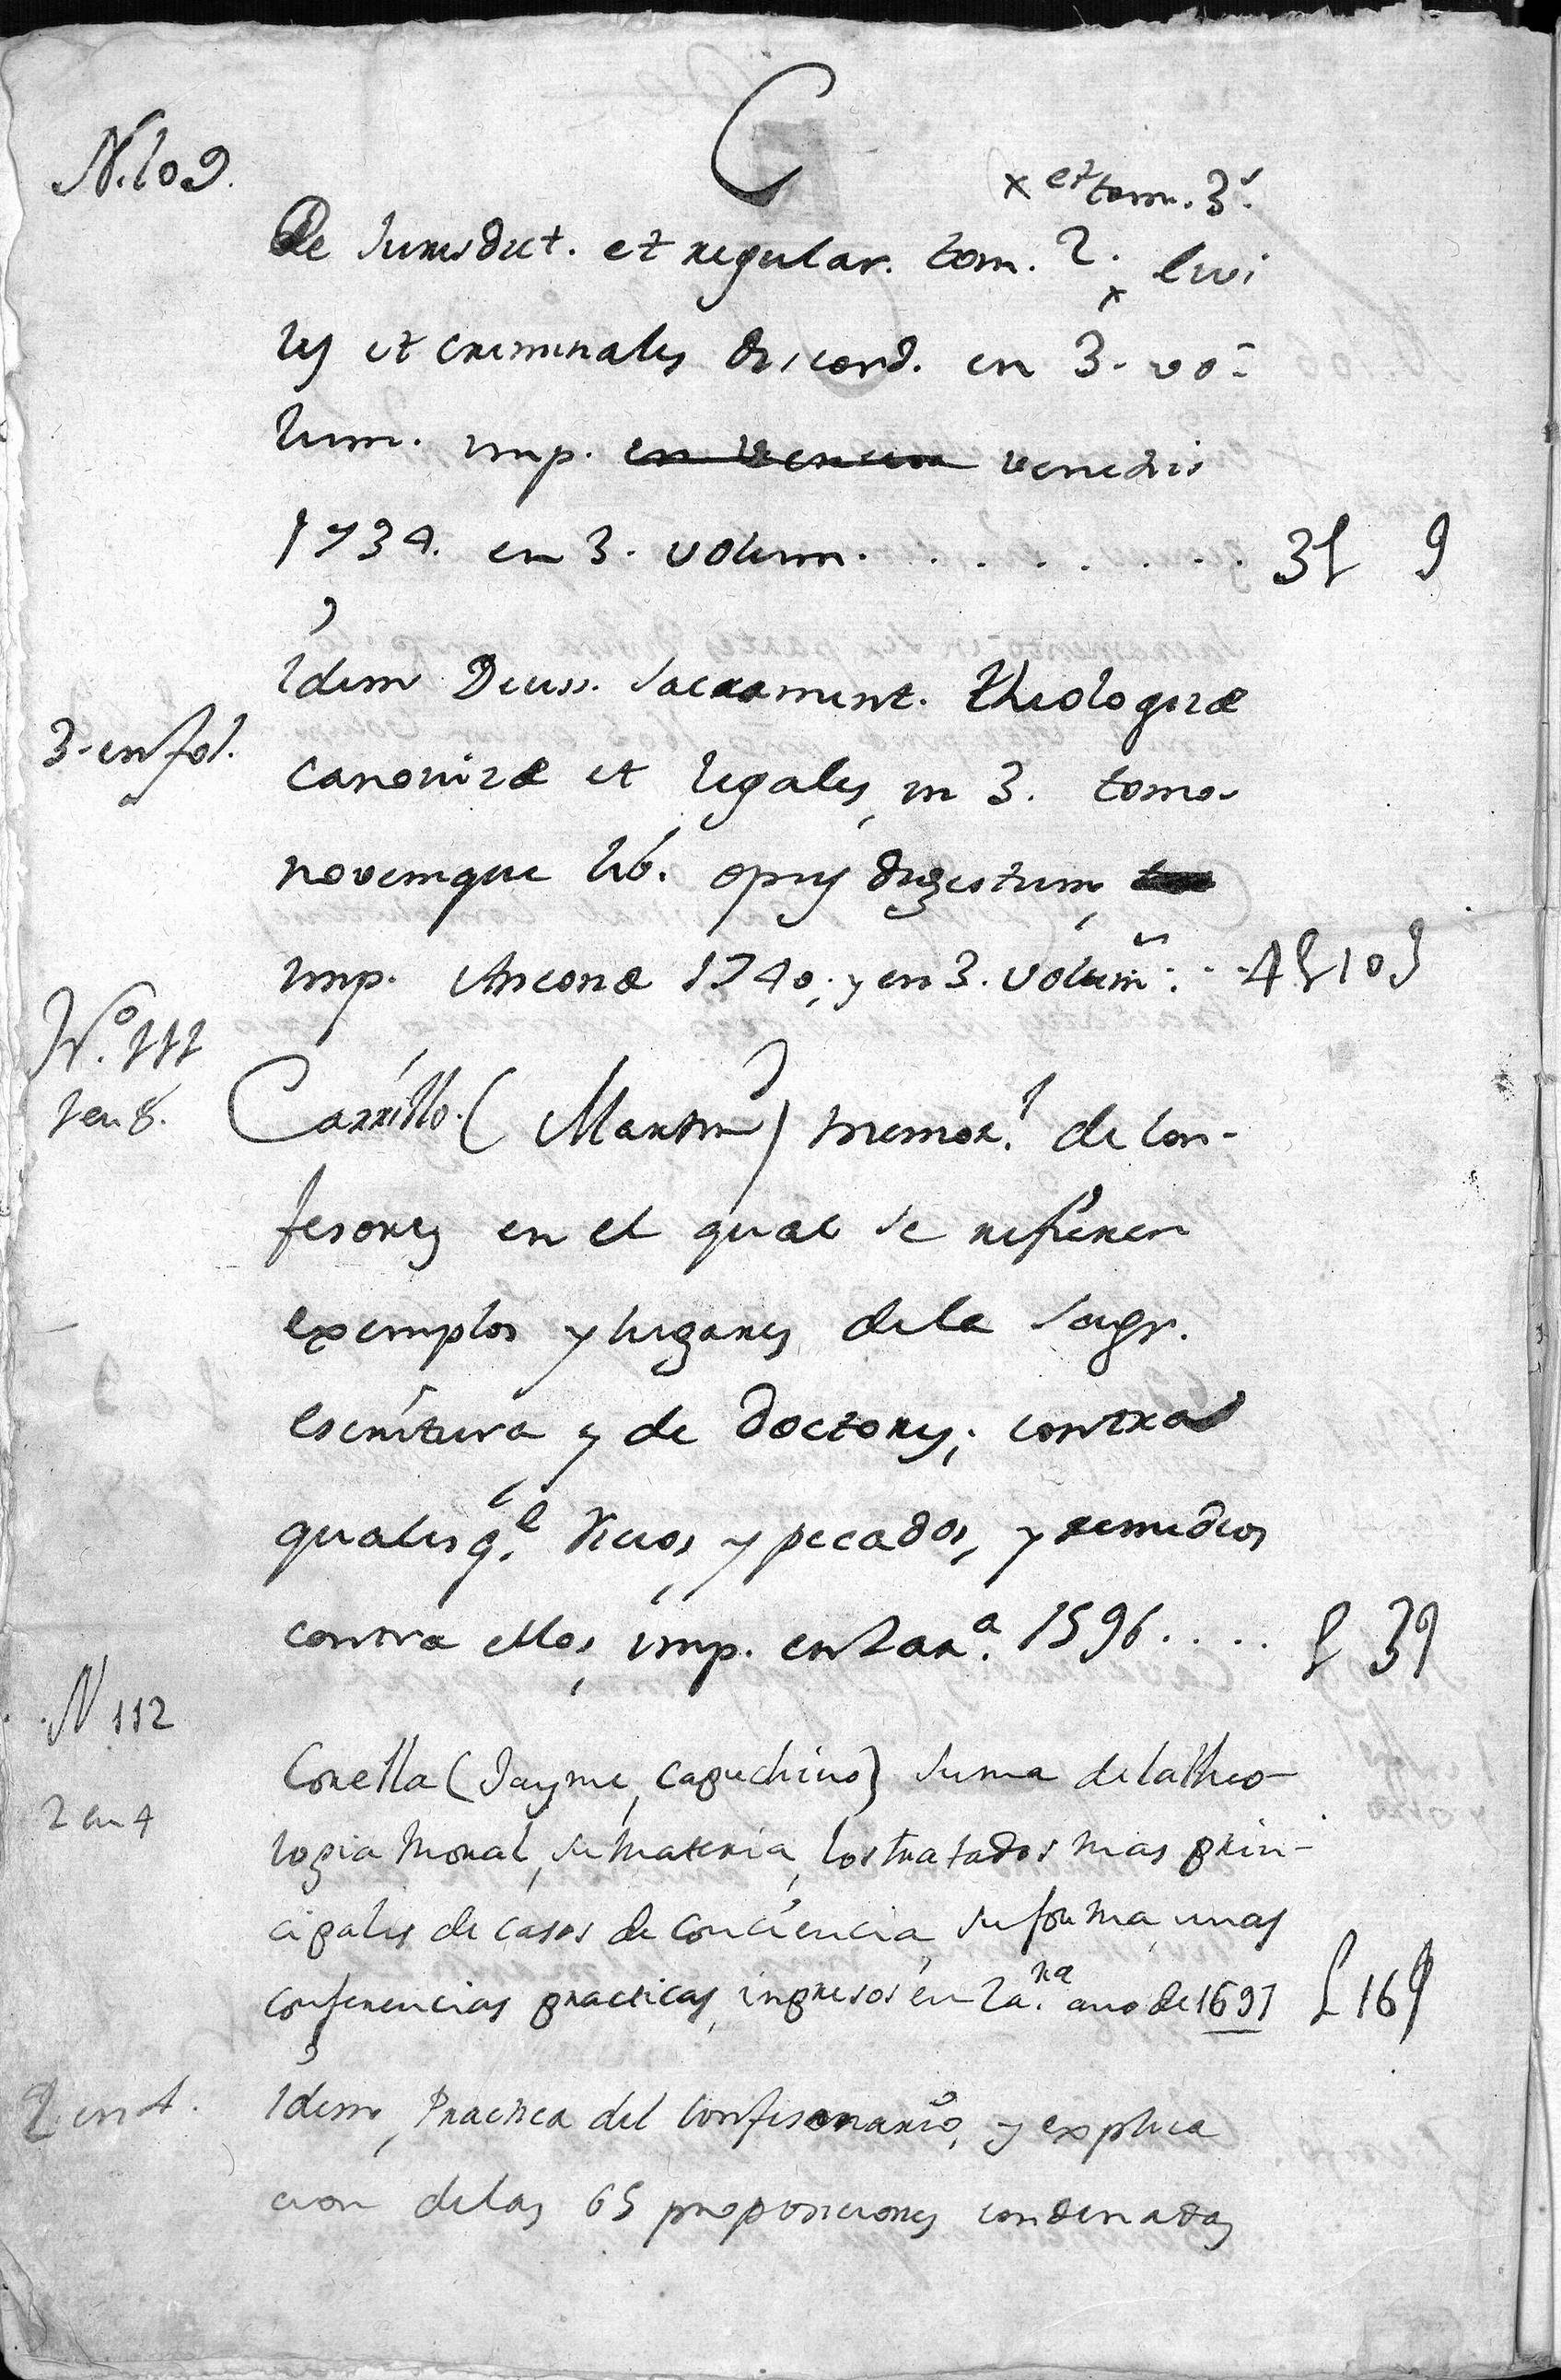 C
N. 109.
x et tom. 3.
De Jurisdict. et regular. tom. 2. x Civi
les et criminales discord. en 3. vo-
lum. imp. en venecia venetiis
1734. en 3. volum. . . . . . . . 3£ 9
Idem Discus. Sacrament. theologicæ
3. en fol.
canonicæ et legales, in 3. tomos
novemque lib. opus digestum,
imp. Anconæ 1740, y en 3. volum. . . . 4£ 10s
Nº. 111
1 en 8.
Carrillo. (Martin) memor.l de con-
fesores en el qual se refieren
exemplos y lugares de la Sagr.
escritura y de Doctores, contra
qualesq.e vicios y pecados, y remedios
contra ellos, imp. en Zar.a 1596. . . . £ 3s
N 112
Corella (Jayme, capuchino) Suma de la theo-
2 en 4
logia Moral, su materia, los tratados mas prin-
cipales de casos de conciencia, su forma, unas
conferencias practicas, impresos en Za.ra año de 1697 £ 16s
2 en 4.
Idem, Practica del confesonario, y explica
cion de las 65 proposiciones condenadas